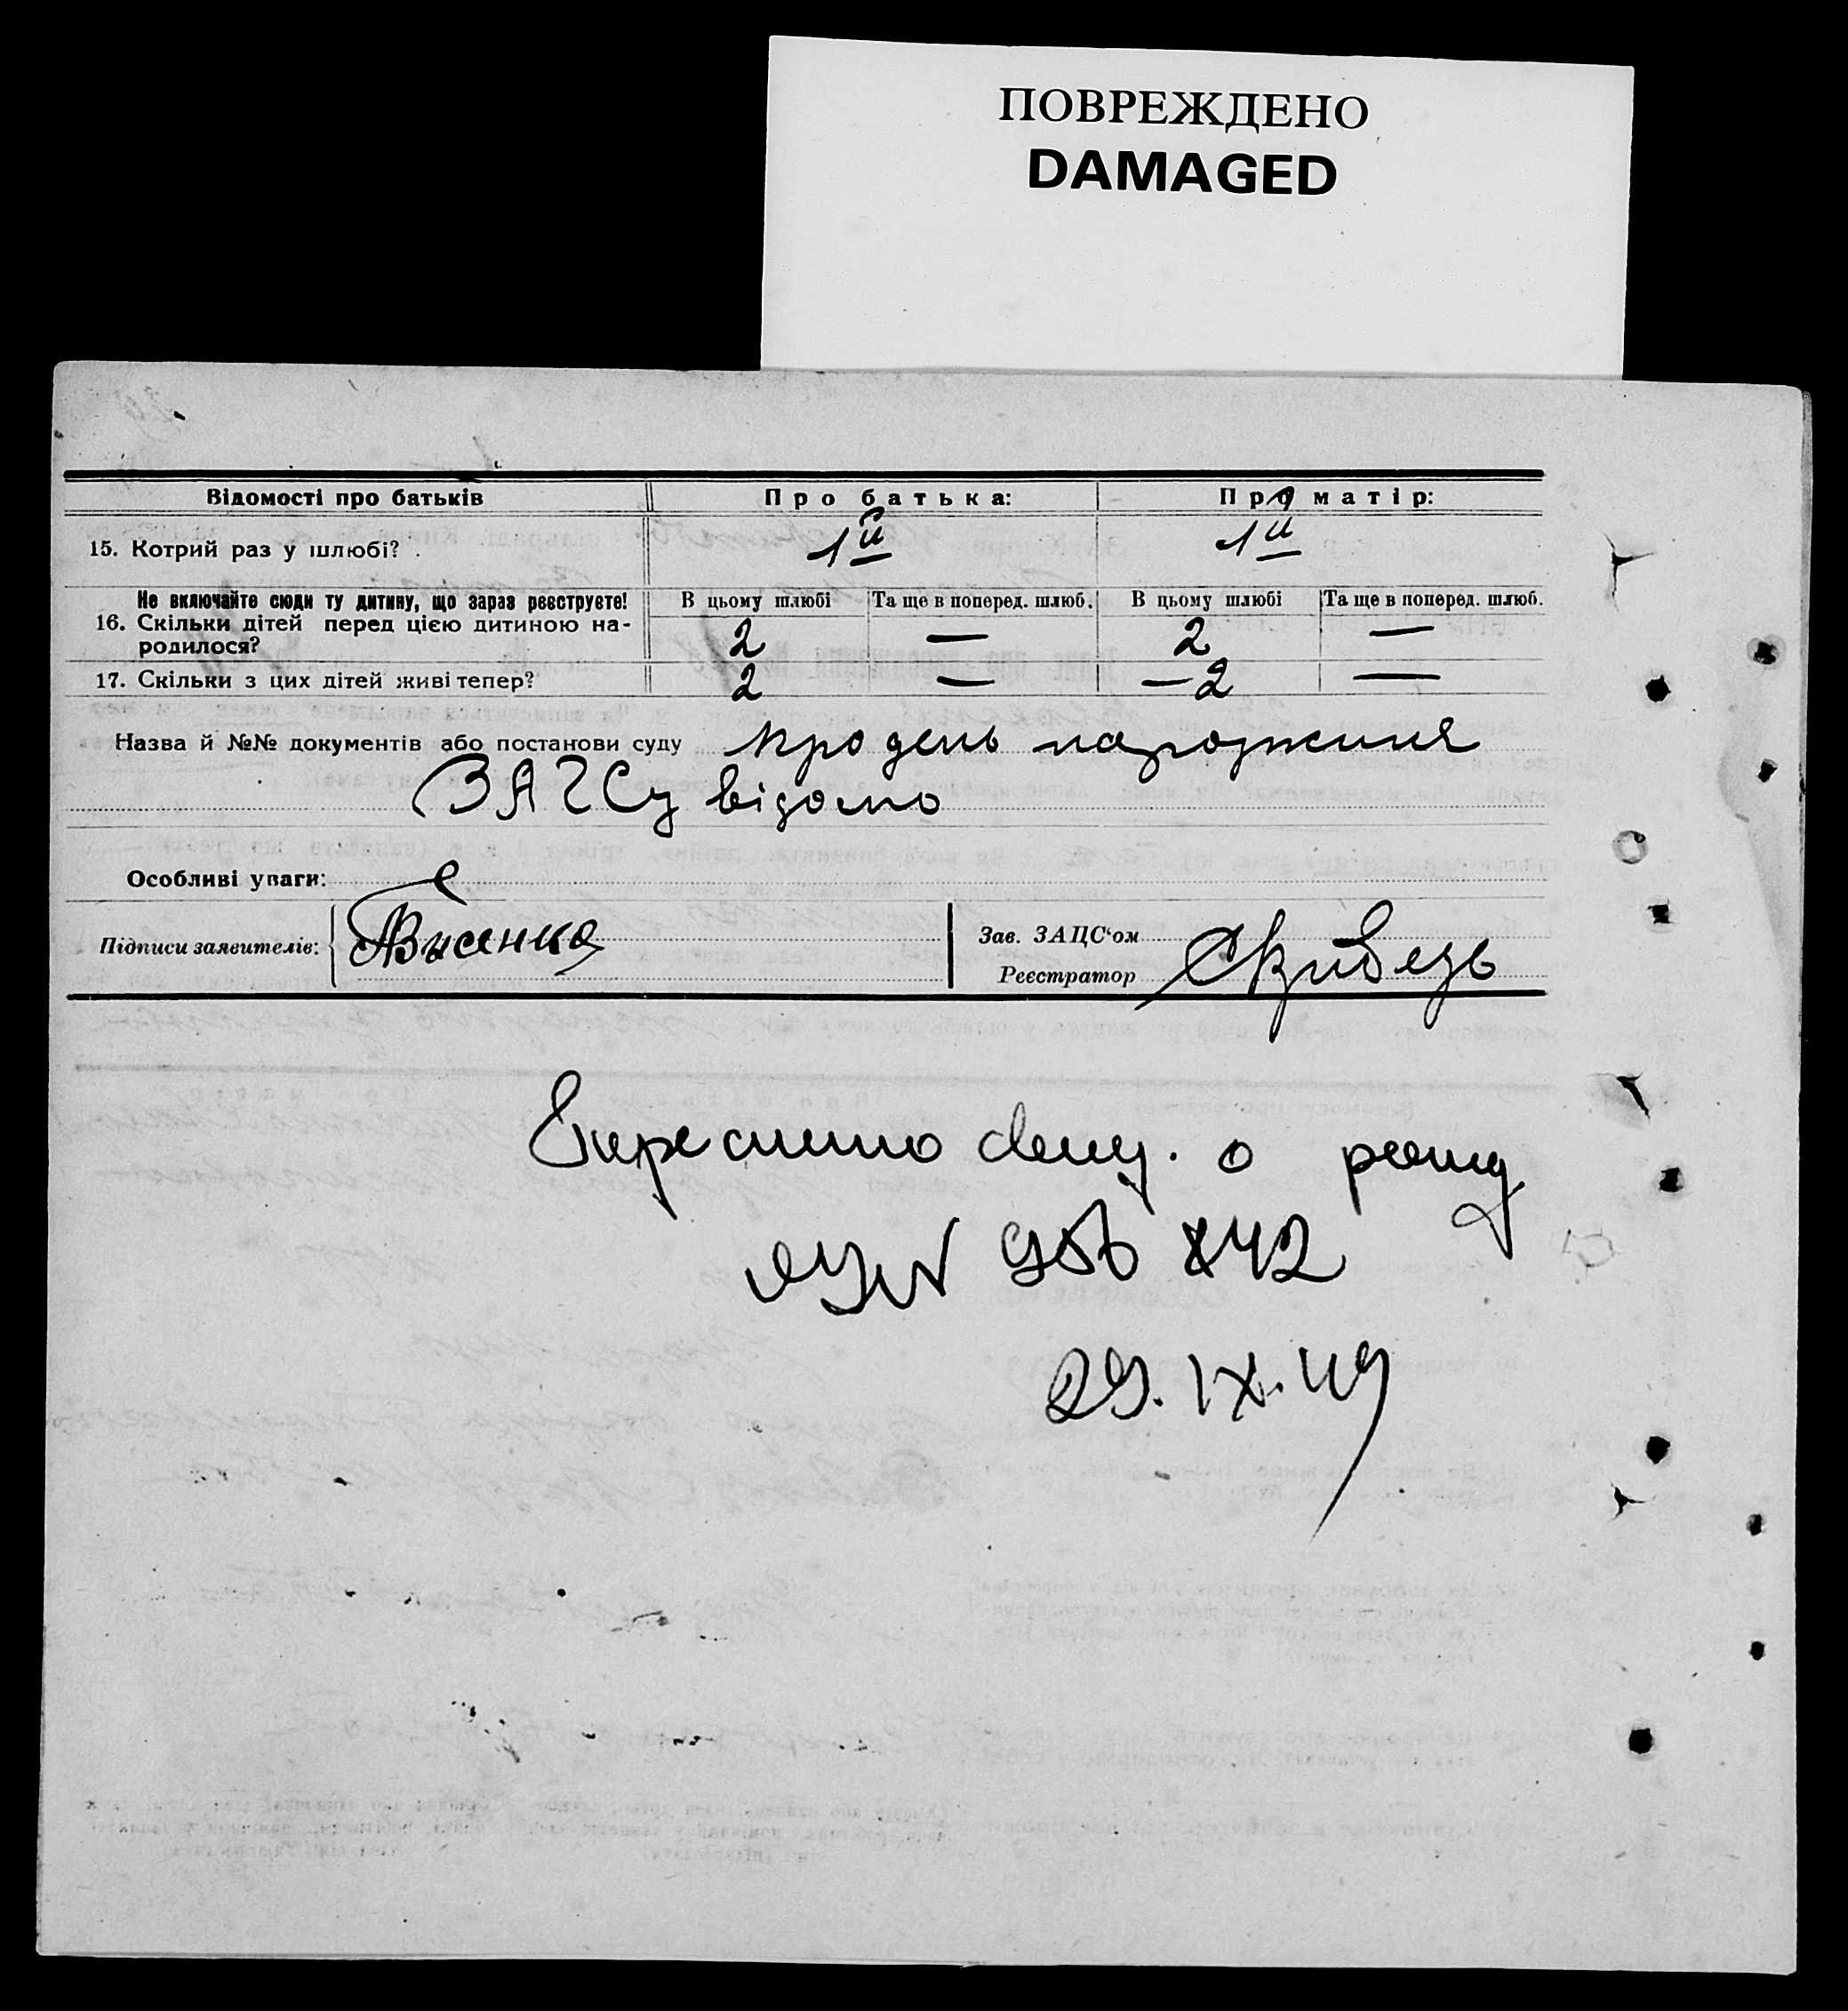 ПОВРЕЖДЕНО
DAMAGED
Відомості про батьків Про батька: Про матір:
15. Котрий раз у шлюбі? 1й 1й
Не включайте сюди ту дитину, що зараз реєструєте! В цьому шлюбі Та ще в поперед. шлюб. В цьому шлюбі Та ще в поперед. шлюб.
16. Скільки дітей перед цією дитиною на-
родилося? 2 — 2 —
17. Скільки з цих дітей живі тепер? 2 — — 2 —
Назва й №№ документів або постанови суду про день народження
ЗАГСу відомо
Особливі уваги:
Підписи заявителів: Зав. ЗАЦС‘ом
Реєстратор
о
29.IX.49